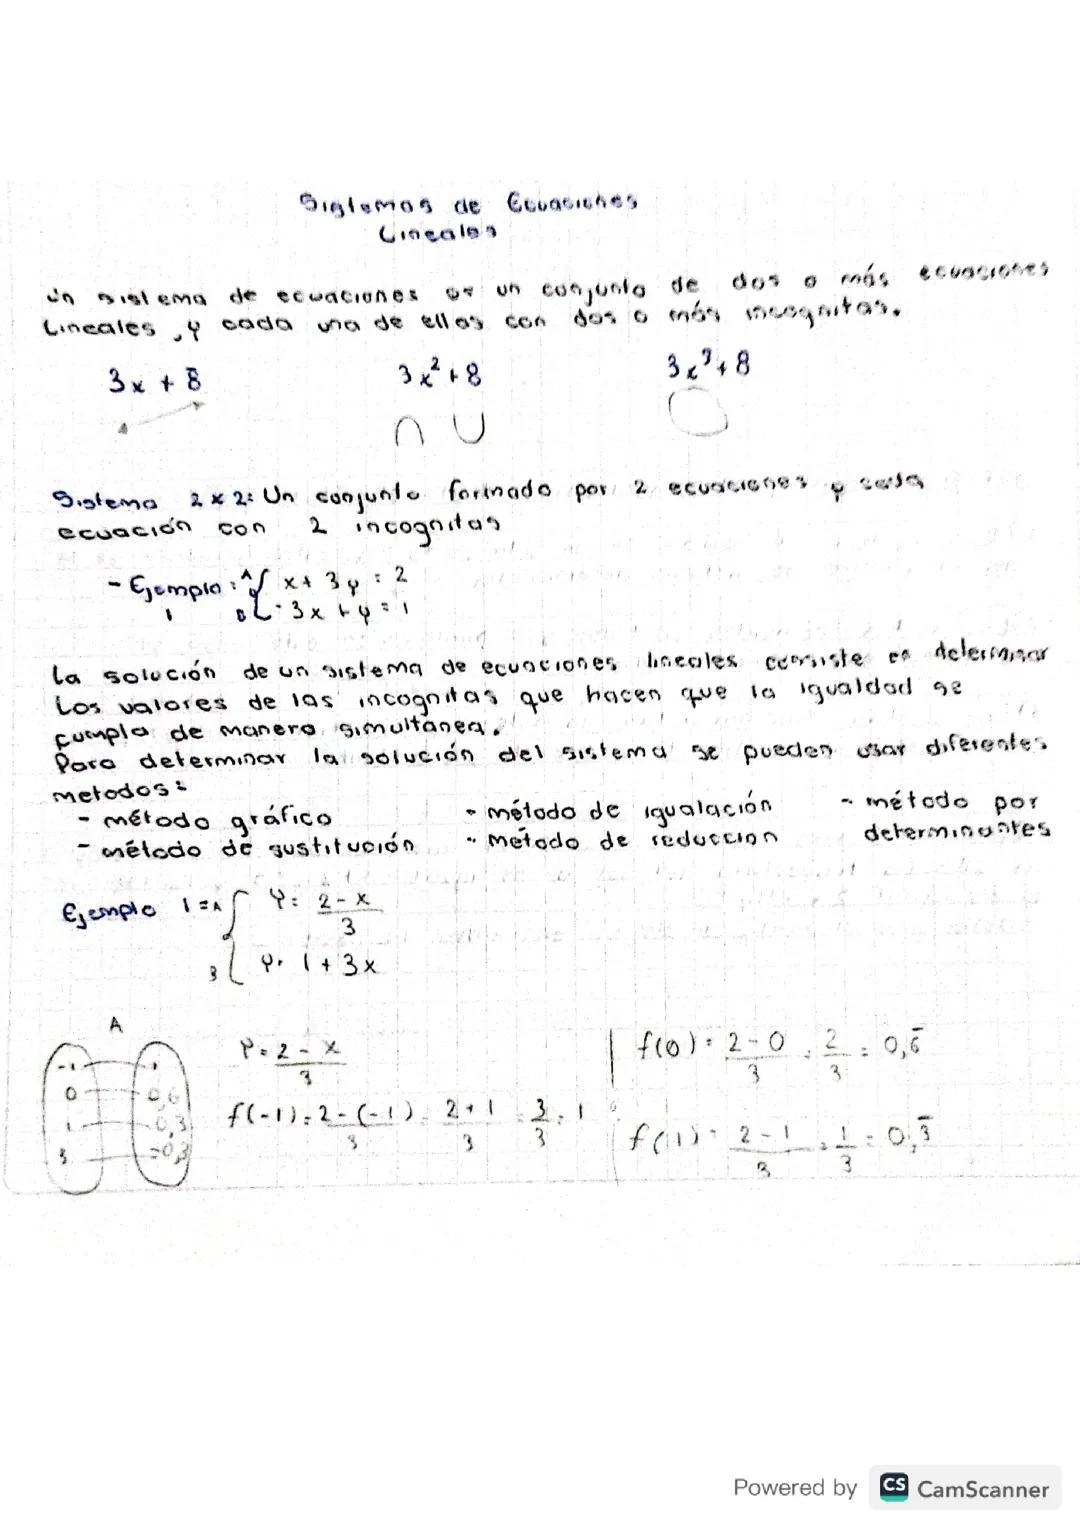 Sistemas de Ecuaciones
Lineales
Un sistema de ecuaciones es un conjunto de dos o más ecuaciones
Lineales, y cada una de ellas con dos o más incognitas.
3x + 8    3x² + 8    3x³ + 8
Sistema 2x2: Un conjunto formado por 2 ecuaciones y cada
ecuación con 2 incognitas
- Ejemplo: A { x + 3y = 2
1    B { -3x + y = 1
La solución de un sistema de ecuaciones lineales consiste en determinar
Los valores de las incognitas que hacen que la igualdad se
cumpla de manera simultánea.
Para determinar la solución del sistema se pueden usar diferentes
metodos:
- método gráfico    - método de igualación    - método por
- método de sustitución    - método de reduccion    determinantes
Ejemplo 1 = A { y = 2 - x / 3
B { y = 1 + 3x
A
-1    1
0    0,6
1    0,3
3    -0,3
y = 2 - x / 3
f(-1) = 2 - (-1) / 3 = 2 + 1 / 3 = 3 / 3 = 1
f(0) = 2 - 0 / 3 = 2 / 3 = 0,6̄
f(1) = 2 - 1 / 3 = 1 / 3 = 0,3̄
Powered by CS CamScanner